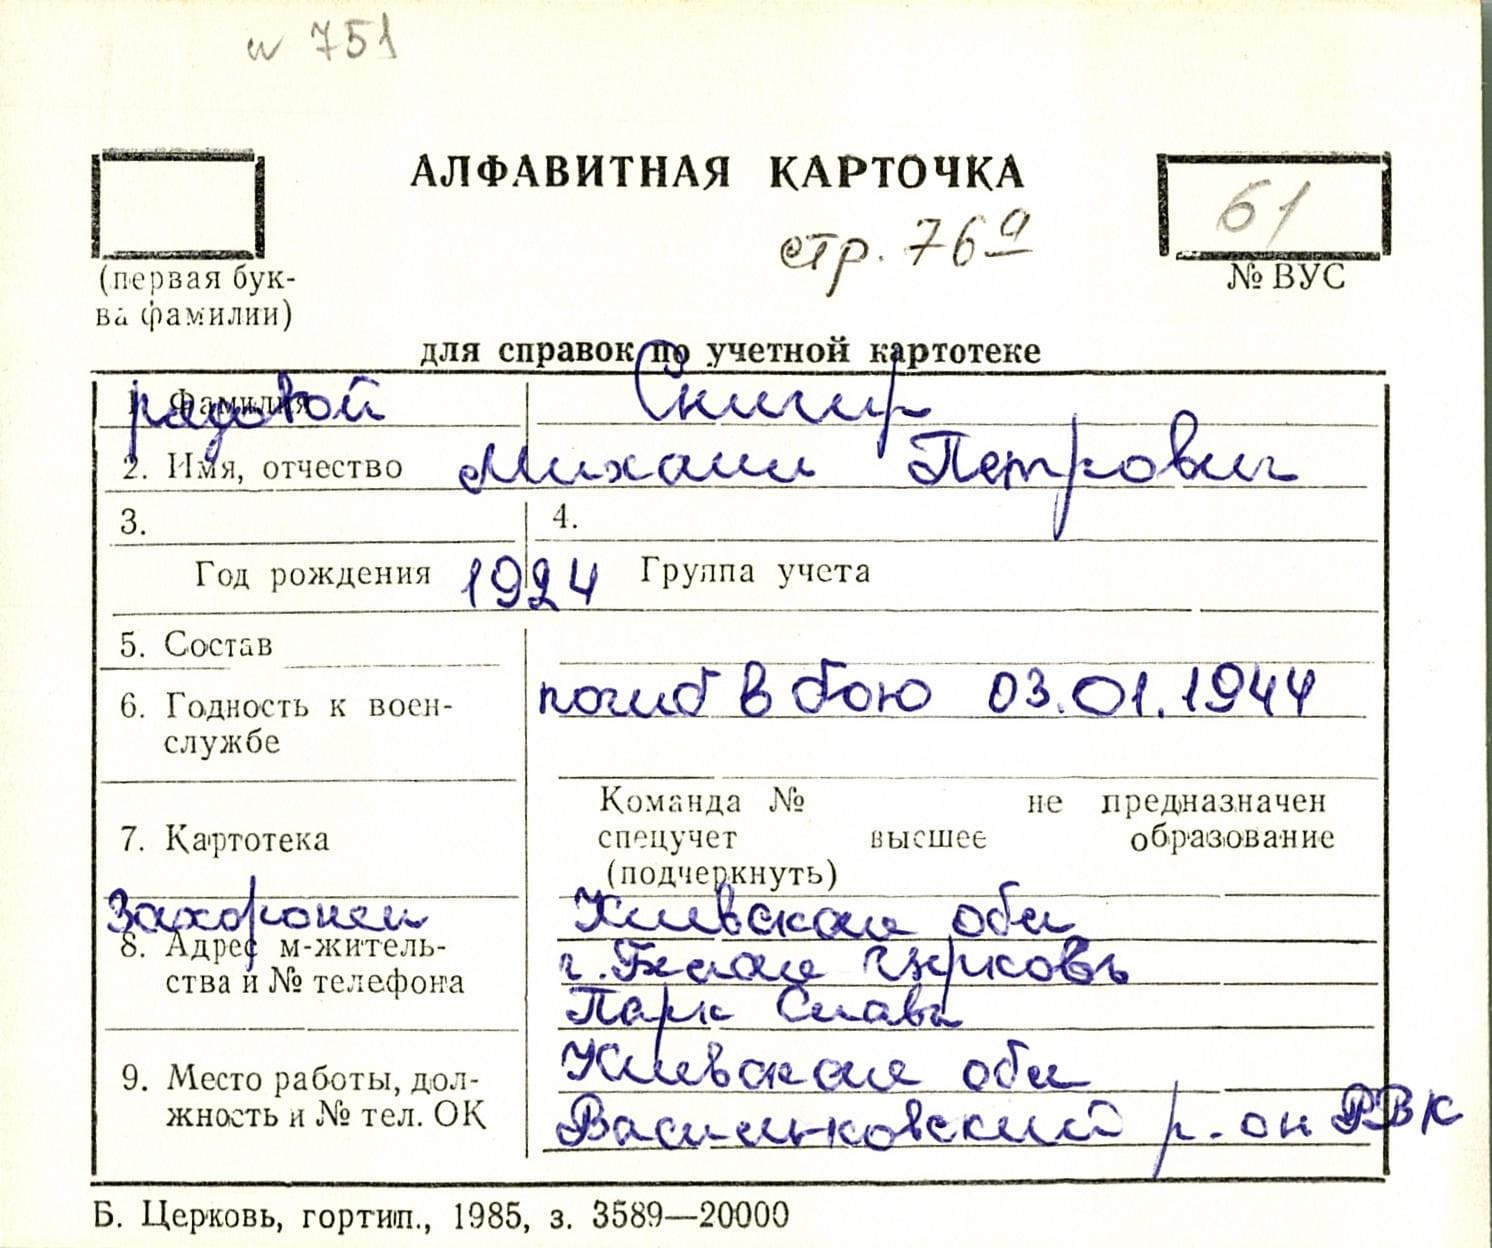 и 751
АЛФАВИТНАЯ КАРТОЧКА
стр. 76а
61
(первая бук-
ва фамилии)
№ ВУС
для справок по учетной картотеке
1. Фамилия рядовой Снигир
2. Имя, отчество Михаил Петрович
3. 4.
Год рождения 1924 Группа учета
5. Состав
6. Годность к воен-
службе
погиб в бою 03.01.1944
7. Картотека
Команда № не предназначен
спецучет высшее образование
(подчеркнуть)
Захоронен Киевская обл
8. Адрес м-житель-
ства и № телефона
г. Белая Церковь
Парк Славы
9. Место работы, дол-
жность и № тел. ОК
Киевская обл
Васильковский р-он РВК
Б. Церковь, гортип., 1985, з. 3589—20000